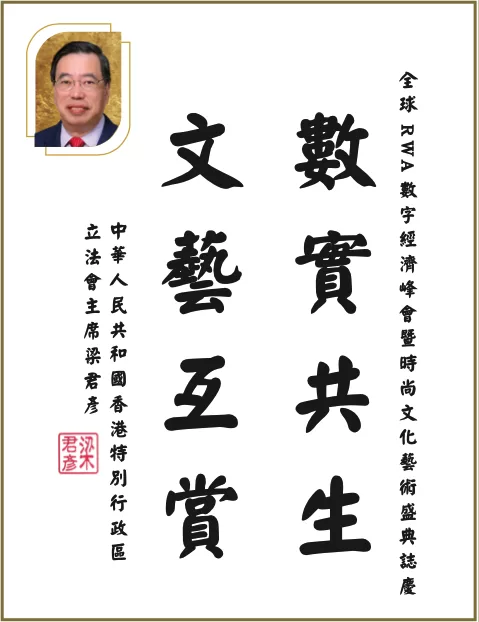 全球RWA數字經濟峰會暨時尚文化藝術盛典誌慶
數實共生
文藝互賞
中華人民共和國香港特別行政區
立法會主席梁君彥
梁君彥